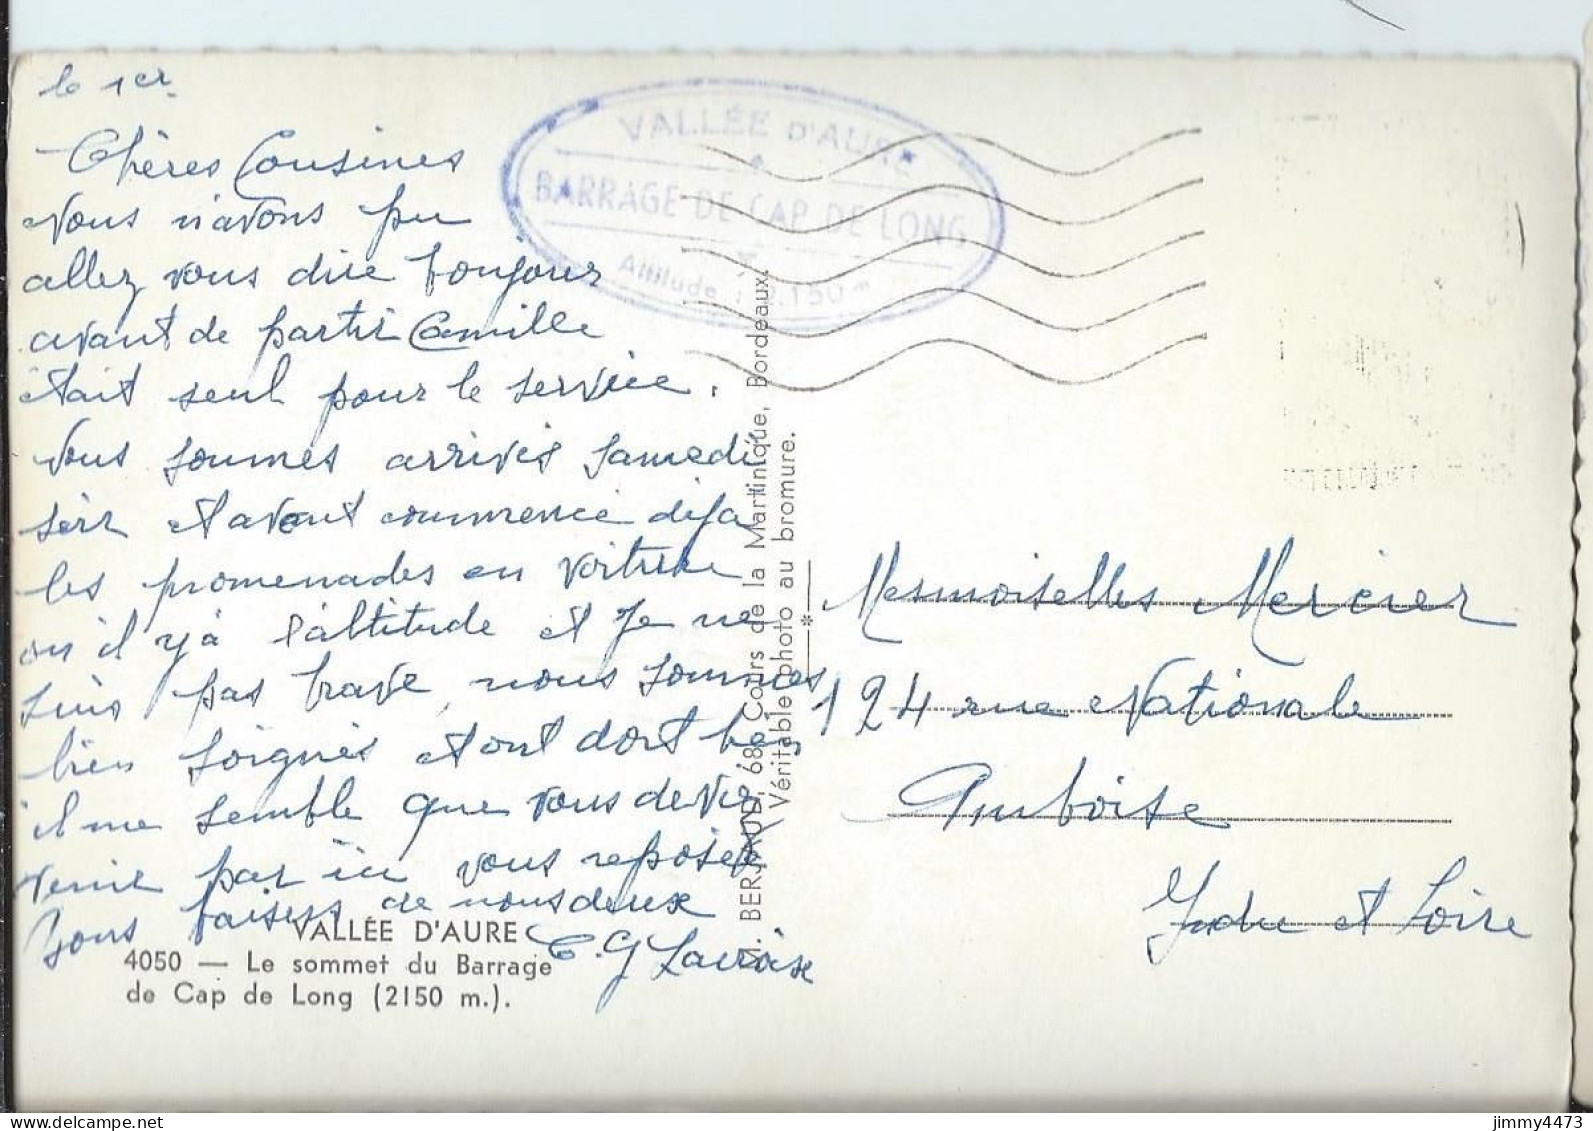 le 1er
Chères Cousines
Nous n'avons pu
allez vous dire bonjour
avant de partir Camille
était seul pour le service.
Nous sommes arrivés samedi
soir et avont commencé déja
les promenades en voiture
ou il y'à l'altitude et je ne
suis pas brave, nous sommes
bien soignés et ont dort bien
il me semble que vous devriez
venir par ici vous reposer
Bons baisers de nous deux
C. G
VALLÉE D'AURE
4050 — Le sommet du Barrage
de Cap de Long (2150 m.).
VALLÉE D'AURE
BARRAGE DE CAP DE LONG
Altitude : 2.150 m
68, Cours de la Martinique, Bordeaux.
Véritable photo au bromure.
Mesmoiselles Mercier
124 rue Nationale
Amboise
Indre et Loire
www.delcampe.net
jimmy4473